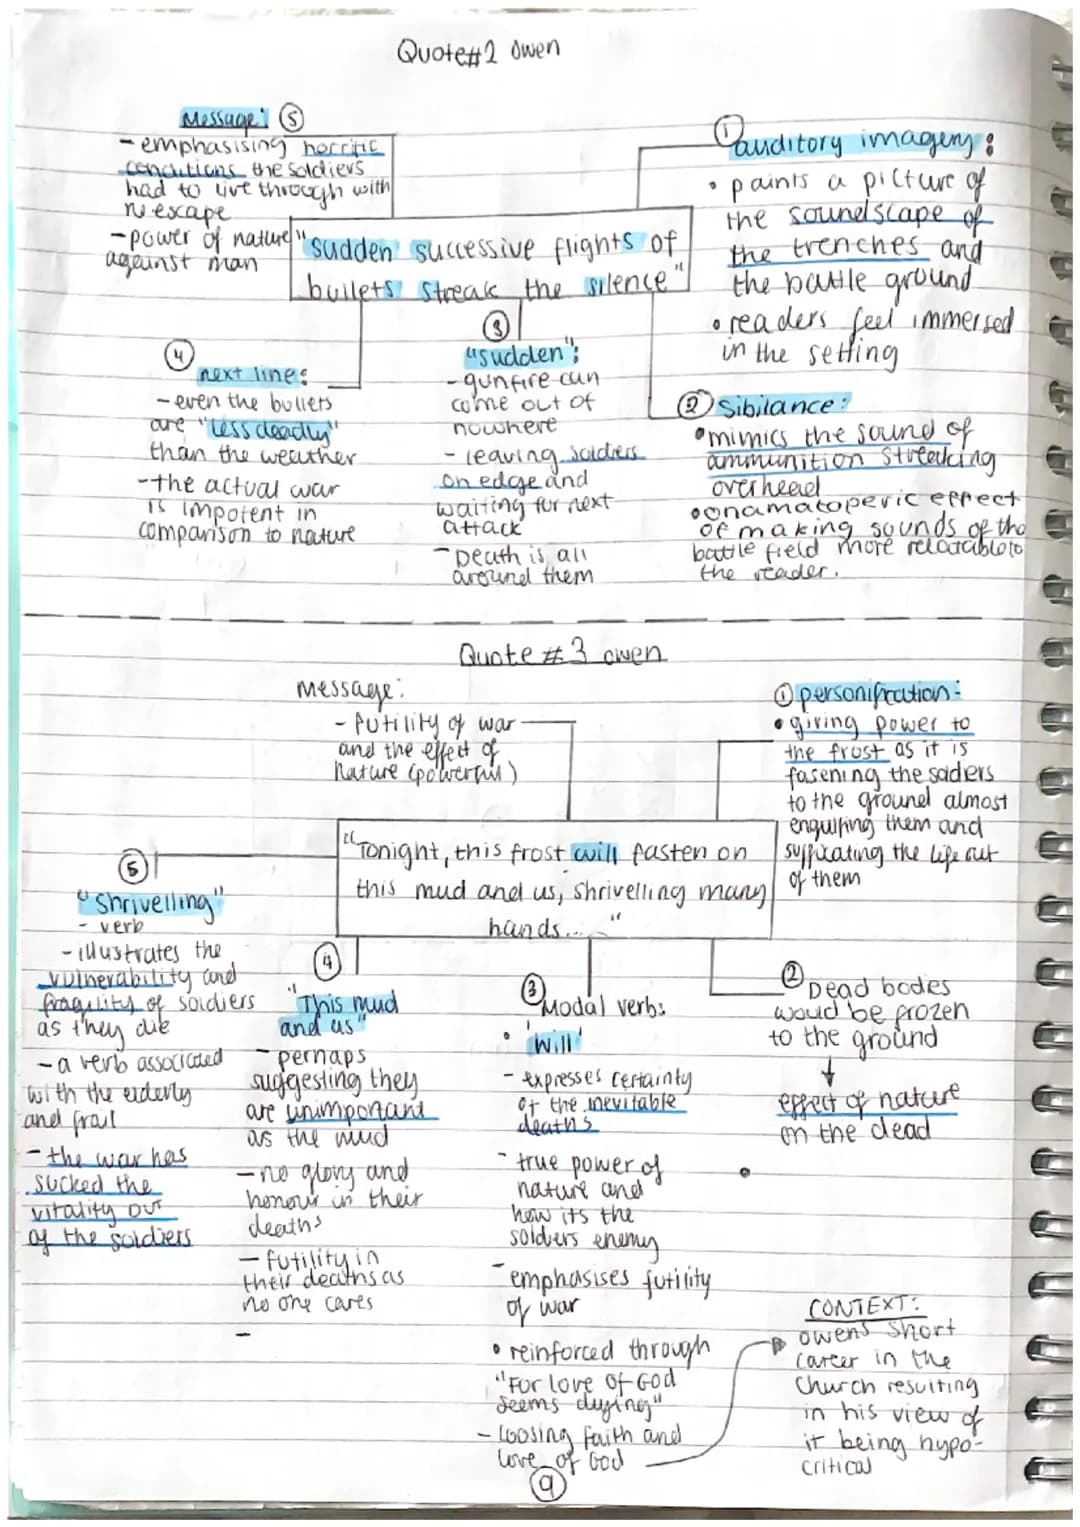 Quote#2 owen
Message: ⑤
- emphasising horrific
conditions the soldiers
had to live through with
no escape
- power of nature
against man
① auditory imagery:
• paints a picture of
the soundscape of
the trenches and
the battle ground
• readers feel immersed
in the setting
"sudden successive flights of
bullets streak the silence"
④
next line:
- even the bullets
are "less deadly"
than the weather
- the actual war
is impotent in
comparison to nature
③
"sudden":
- gunfire can
come out of
nowhere
- leaving soldiers
on edge and
waiting for next
attack
- Death is all
around them
② Sibilance:
• mimics the sound of
ammunition streaking
overhead
• onamatoperic effect
of making sounds of the
battle field more relatable to
the reader.
Quote #3 owen
Message:
- futility of war
and the effect of
Nature (powerful)
① personification:
• giving power to
the frost as it is
fasening the soliders
to the ground almost
engulfing them and
suffixating the life out
of them
"Tonight, this frost will fasten on
this mud and us, shrivelling many
hands... "
⑤
"Shrivelling"
- verb
- illustrates the
vulnerability and
fragility of soldiers
as they die
- a verb associated
with the elderly
and frail
- the war has
sucked the
vitality out
of the soldiers
④
"This mud
and us"
- perhaps
suggesting they
are unimportant
as the mud
- no glory and
honour in their
deaths
- futility in
their deaths as
no one cares
-
③ Modal verb:
• 'Will'
- expresses certainty
of the inevitable
deaths
- true power of
nature and
how its the
soldiers enemy
- emphasises futility
of war
• reinforced through
"For love of God
seems dying"
- loosing faith and
love of God
② Dead bodies
would be frozen
to the ground
↓
effect of nature
on the dead
•
CONTEXT:
owens short
career in the
church resulting
in his view of
it being hypo-
critical
⑨